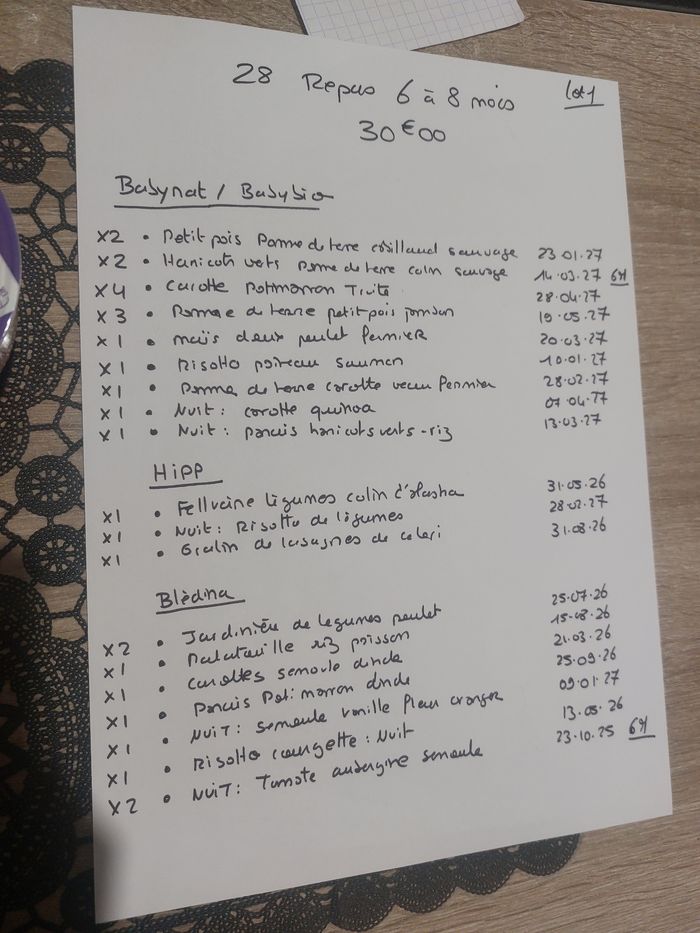 28 Repas 6 à 8 mois lot 1
30€00
Babynat / Babybio
X2 • Petit pois Pomme de terre cabillaud sauvage 23.01.27
X2 • Haricots verts Pomme de terre colin sauvage 14.03.27 6M
X4 • Carotte Potimarron Truite 28.04.27
X3 • Pomme de terre petit pois jambon 19.05.27
X1 • maïs doux poulet fermier 20.03.27
X1 • Risotto poireau saumon 10.01.27
X1 • Pomme de terre carotte veau fermier 28.02.27
X1 • Nuit : carotte quinoa 07.04.27
X1 • Nuit : panais haricots verts - riz 13.03.27
Hipp
X1 • légumes colin d'Alaska 31.05.26
X1 • Nuit : Risotto de légumes 28.02.27
X1 • Gratin de lasagnes de celeri 31.08.26
Blèdina
X2 • Jardinière de legumes poulet 25.07.26
X1 • Ratatouille riz poisson 15.08.26
X1 • Carottes semoule dinde 21.03.26
X1 • Panais Potimarron dinde 25.09.26
X1 • NUIT : Semoule vanille fleur oranger 09.01.27
X1 • Risotto courgette : Nuit 13.05.26
X2 • NUIT : Tomate aubergine semoule 23.10.25 6M